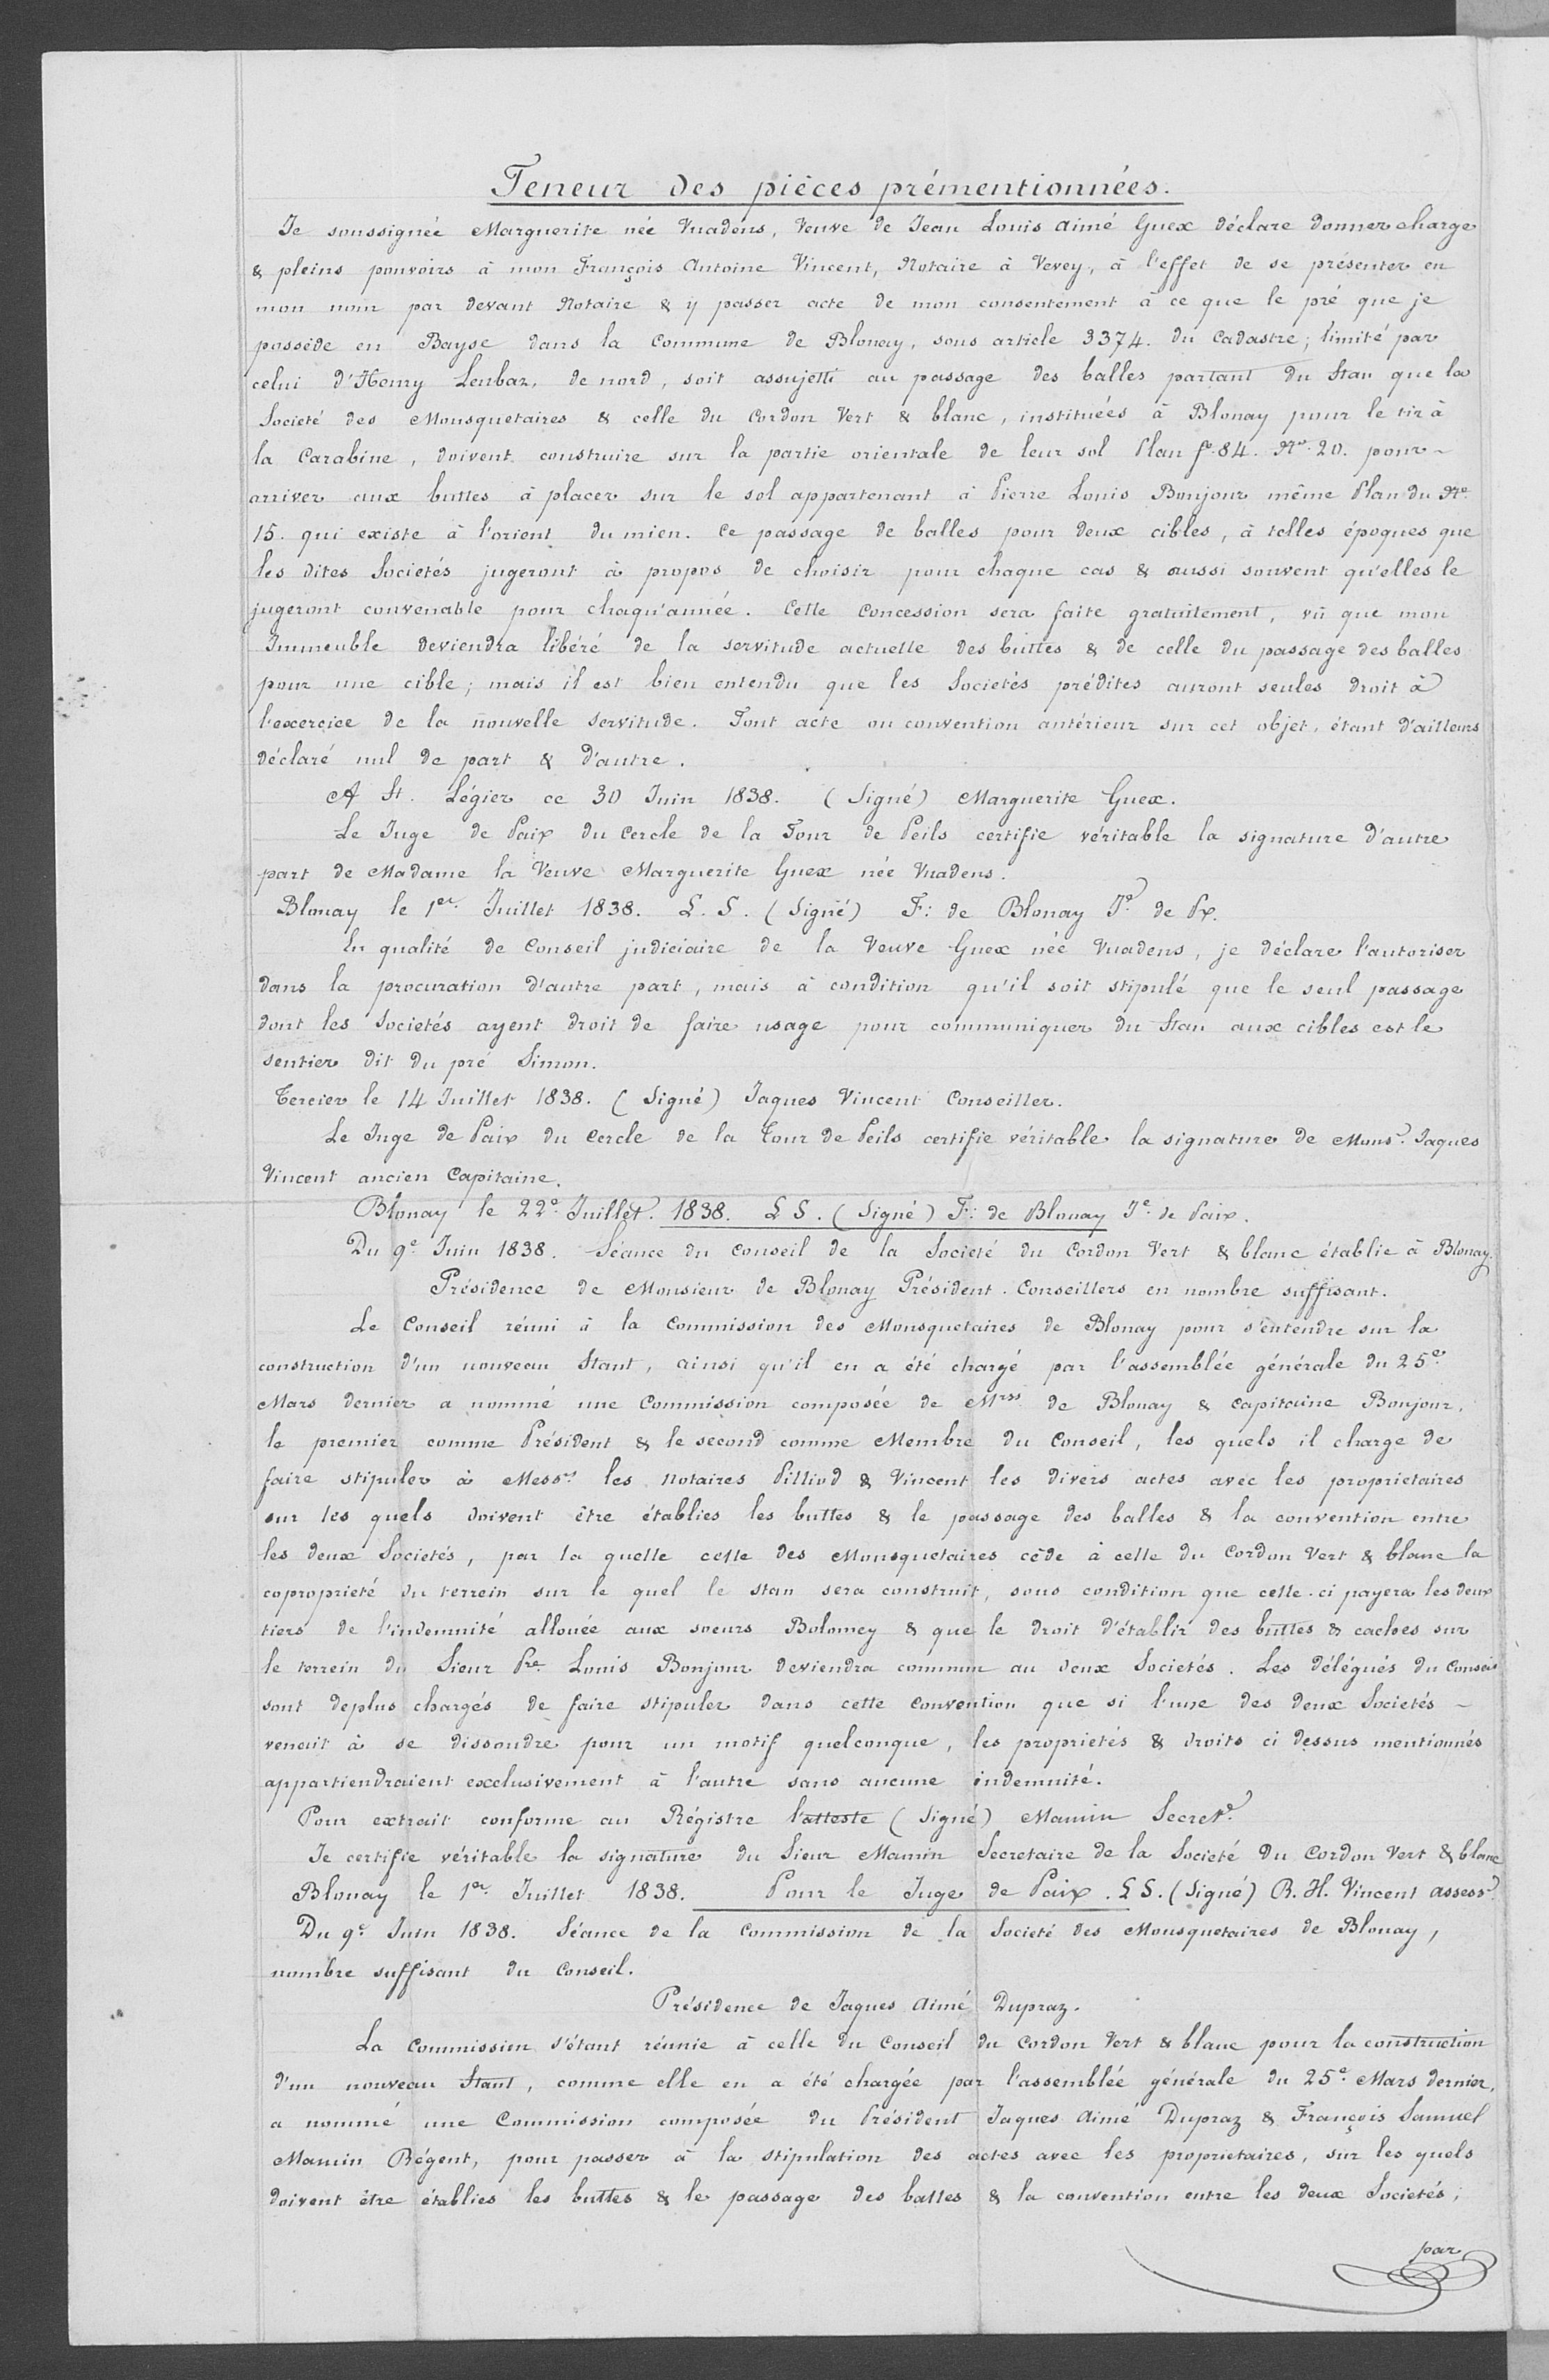 Teneur des pièces prémentionnées.
Je soussignée Marguerite née Vuadens, Veuve de Jean Louis Aimé Guex déclare donner charge
& pleins pouvoirs à mon François Antoine Vincent, Notaire à Vevey, à l'effet de se présenter en
mon nom par devant Notaire & y passer acte de mon consentement à ce que le pré que je
possède en Bayse dans la Commune de Blonay, sous article 3374. du Cadastre; limité par
celui d'Henry Lenbaz, de nord, soit assujetti au passage des balles partant du Stan que la
Societé des Mousquetaires & celle du Cordon Vert & blanc, instituées à Blonay pour le tir à
la Carabine, doivent construire sur la partie orientale de leur sol Plan fº 84. Nº 20. pour
arriver aux buttes à placer sur le sol appartenant à Pierre Louis Bonjour même Plan du Nº
15. qui existe à l'orient du mien. Ce passage de balles pour deux cibles, à telles époques que
les dites Societés jugeront à propos de choisir pour chaque cas & aussi souvent qu'elles le
jugeront convenable pour chaqu'année. Cette Concession sera faite gratuitement, vû que mon
Immeuble deviendra libéré de la servitude actuelle des buttes & de celle du passage des balles
pour une cible; mais il est bien entendu que les Societés prédites auront seules droit à
l'excercice de la nouvelle servitude. Tout acte ou convention antérieur sur cet objet, étant d'ailleurs
déclaré nul de part & d'autre.
A St. Légier ce 30 Juin 1838. (Signé) Marguerite Guex.
Le Juge de Paix du Cercle de la Tour de Peils certifie véritable la signature d'autre
part de Madame la Veuve Marguerite Guex née Vuadens.
Blonay le 1er Juillet 1838. L. S. (Signé) F: de Blonay Je de Px.
En qualité de Conseil judiciaire de la Veuve Guex née Vuadens, je déclare l'autoriser
dans la procuration d'autre part, mais à condition qu'il soit stipulé que le seul passage
dont les Societés ayent droit de faire usage pour communiquer du Stan aux cibles est le
sentier dit du pré Simon.
Tercier le 14 Juillet 1838. (Signé) Jaques Vincent Conseiller.
Le Juge de Paix du Cercle de la Tour de Peils certifie véritable la signature de Monsr. Jaques
Vincent ancien Capitaine.
Blonay le 22e Juillet. 1838. L S. (Signé) F: de Blonay Je de Paix.
Du 9e Juin 1838. Séance du Conseil de la Societé du Cordon Vert & blanc établie à Blonay.
Présidence de Monsieur de Blonay Président. Conseillers en nombre suffisant.
Le Conseil réuni à la Commission des Mousquetaires de Blonay pour s'entendre sur la
construction d'un nouveau Stant, ainsi qu'il en a été chargé par l'assemblée générale du 25e
Mars dernier a nommé une Commission composée de Mrss de Blonay & Capitaine Bonjour,
le premier comme Président & le second comme Membre du Conseil, les quels il charge de
faire stipuler à Messrs les Notaires Pilliod & Vincent les divers actes avec les proprietaires
sur les quels doivent être établies les buttes & le passage des balles & la convention entre
les deux Societés, par la quelle celle des Mousquetaires cède à celle du Cordon Vert & blanc la
coproprieté du terrein sur le quel le stan sera construit, sous condition que celle-ci payera les deux
tiers de l'indemnité allouée aux soeurs Bolomey & que le droit d'établir des buttes & caches sur
le terrein du Sieur Pre Louis Bonjour deviendra commun au deux Societés. Les délégués du Conseil
sont deplus chargés de faire stipuler dans cette Convention que si l'une des deux Societés
venait à se dissoudre pour un motif quelconque, les proprietés & droits ci dessus mentionnés
appartiendraient exclusivement à l'autre sans aucune indemnité.
Pour extrait conforme au Régistre l'atteste (Signé) Mamin Secrete
Je certifie véritable la signature du Sieur Mamin Secretaire de la Societé du Cordon Vert & blanc
Blonay le 1er Juillet 1838. Pour le Juge de Paix. L S. (Signé) R. H. Vincent assessr
Du 9e Juin 1838. Séance de la Commission de la Societé des Mousquetaires de Blonay,
nombre suffisant du Conseil.
Présidence de Jaques Aimé Dupraz.
La Commission s'étant réunie à celle du Conseil du Cordon Vert & blanc pour la construction
d'un nouveau Stant, comme elle en a été chargée par l'assemblée générale du 25e Mars dernier,
a nommé une Commission composée du Président Jaques Aimé Dupraz & François Samuel
Mamin Régent, pour passer à la stipulation des actes avec les proprietaires, sur les quels
doivent être établies les buttes & le passage des balles & la convention entre les deux Societés;
par